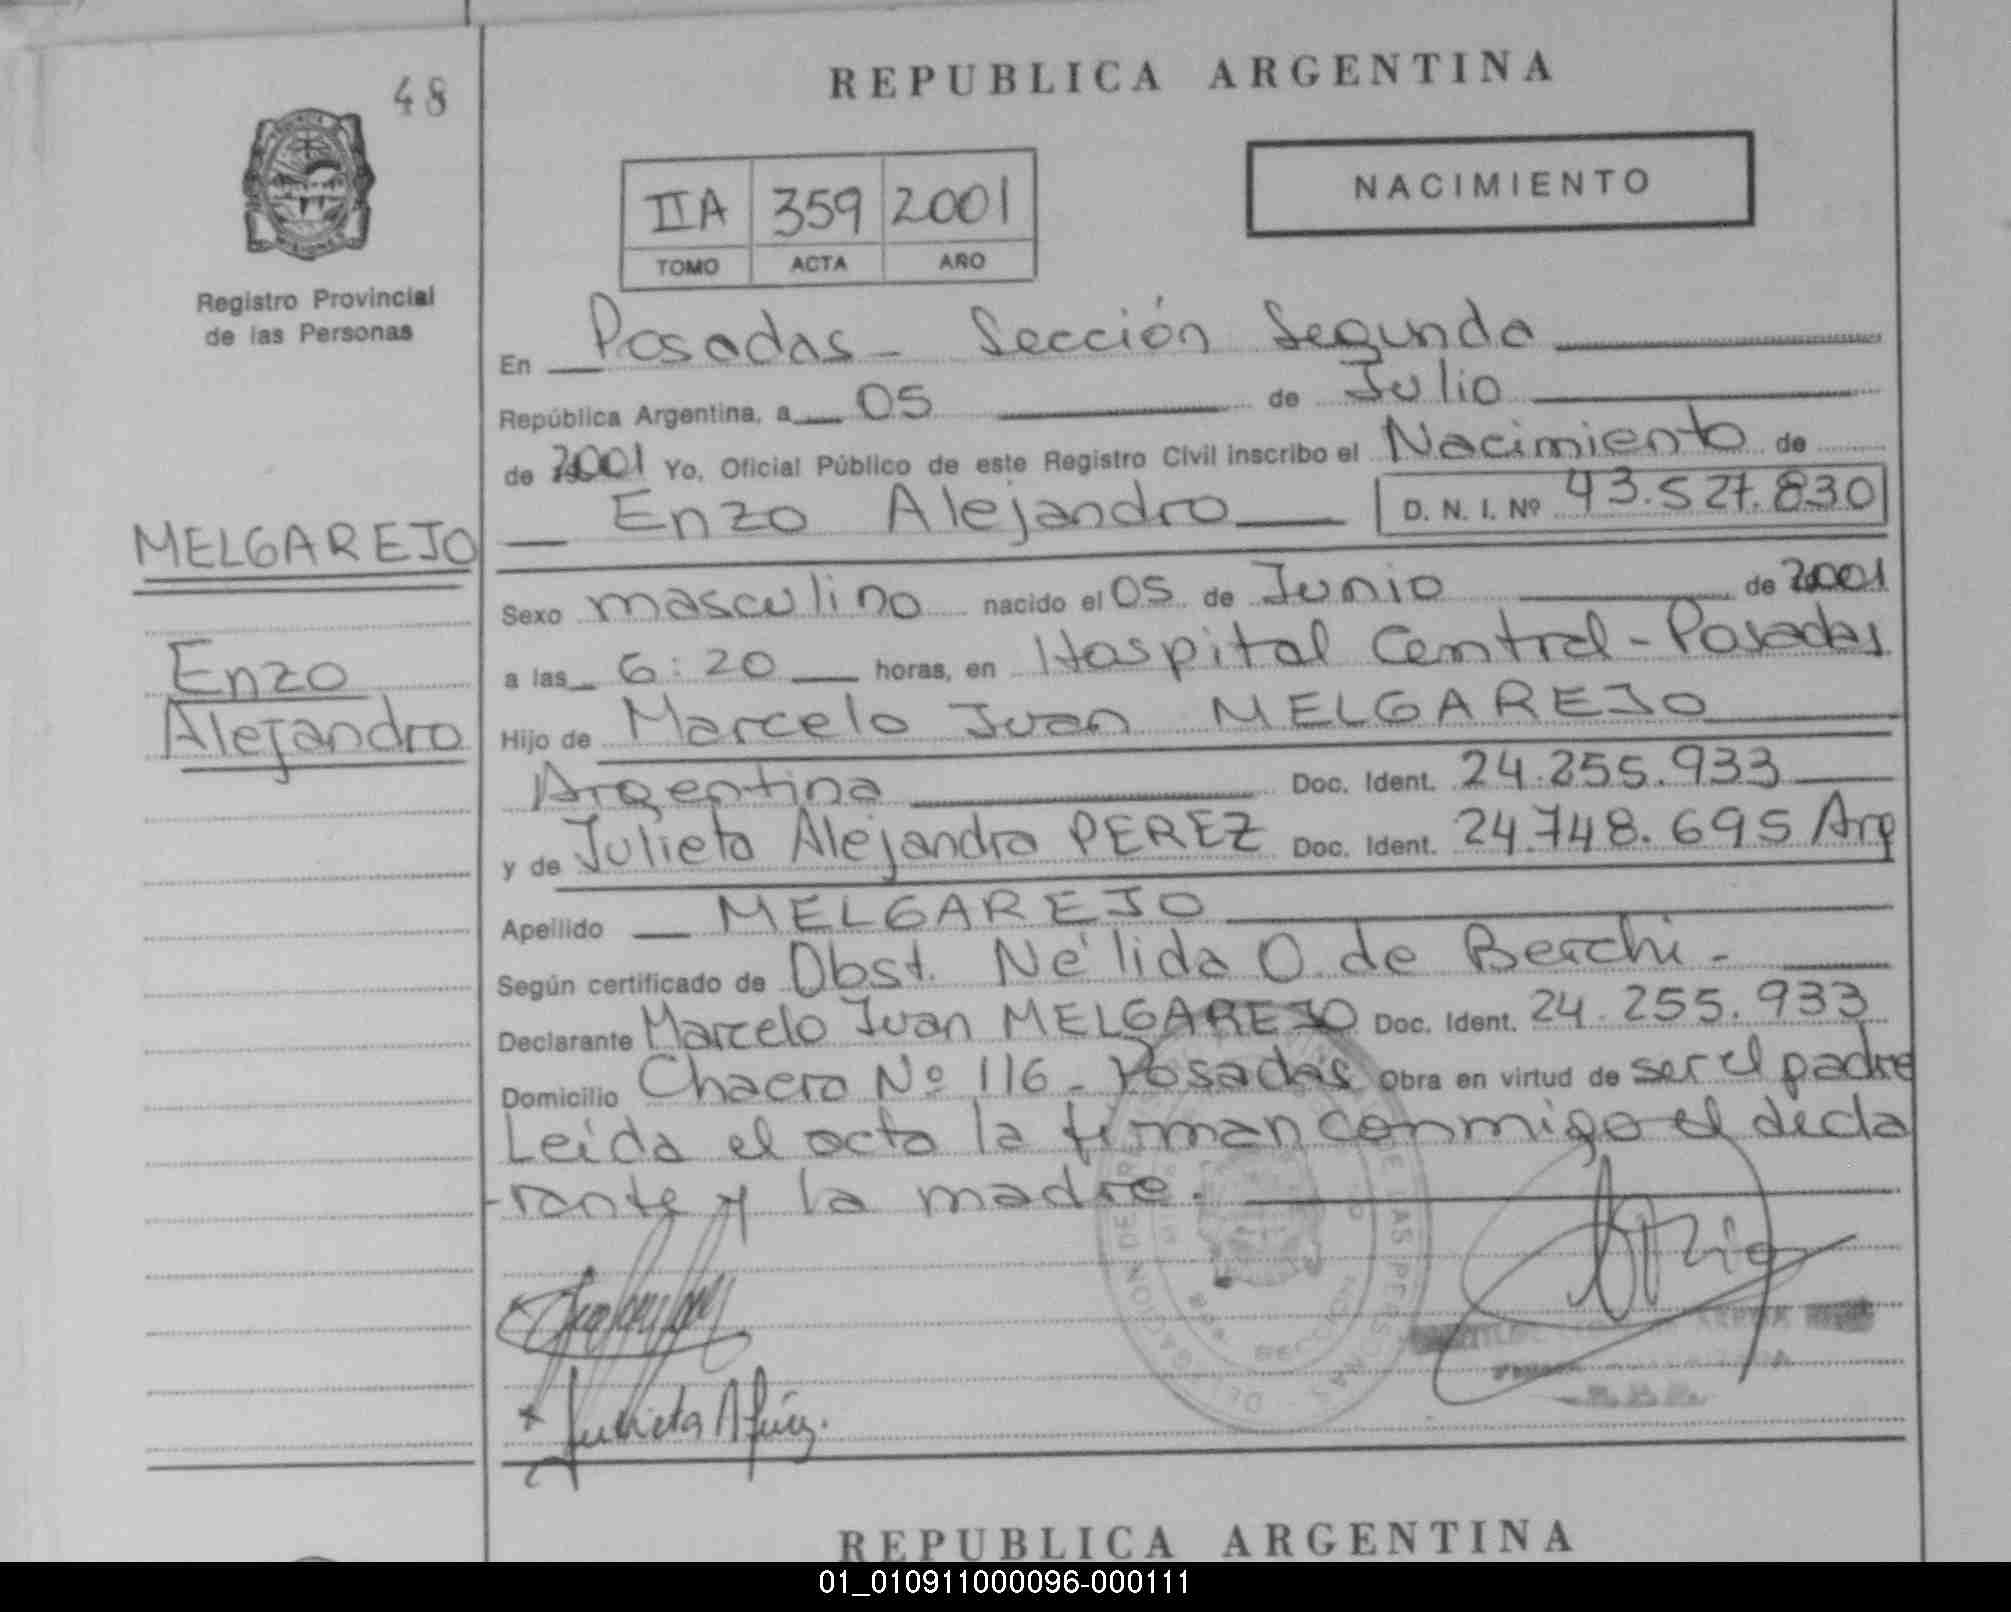 48
REPUBLICA ARGENTINA
NACIMIENTO
IIA 359 2001
TOMO ACTA AÑO
Registro Provincial
de las Personas
En Posadas - Sección Segunda
República Argentina, a 05 de Julio
de 2001 Yo, Oficial Público de este Registro Civil inscribo el Nacimiento de
Enzo Alejandro D. N. I. Nº 43.527.830
MELGAREJO
Enzo
Alejandro
Sexo masculino nacido el 05 de Junio de 2001
a las 6:20 horas, en Hospital Central - Posadas
Hijo de Marcelo Juan MELGAREJO
Argentina Doc. Ident. 24.255.933
y de Julieta Alejandra PEREZ Doc. Ident. 24.748.695 Arg
Apellido MELGAREJO
Según certificado de Obst. Nélida O. de Berchi -
Declarante Marcelo Juan MELGAREJO Doc. Ident. 24.255.933
Domicilio Chacra Nº 116 - Posadas Obra en virtud de ser el padre
Leída el acta la firman conmigo el decla
-rante y la madre.
DELEGACION DE LAS PERSONAS
Julieta A
REPUBLICA ARGENTINA
01_010911000096-000111